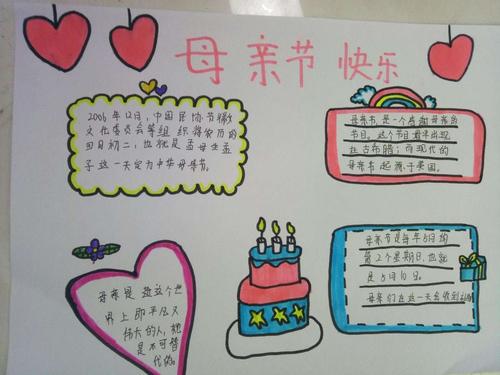 母亲节快乐
2006年12月,中国民协节
文化委员会等组织将农历的
四月初二,也就是孟母生孟
子这一天定为中华母亲节。
母亲节,是一个感谢母亲的
节日。这个节日最早出现
在古希腊;而现代的
母亲节起源于美国。
母亲是这个世
界上即平凡又
伟大的人,她
是不可替
代的。
母亲节是每年5月的
第2个星期日,也就
是5月10日。
母亲们在这一天会收到礼物